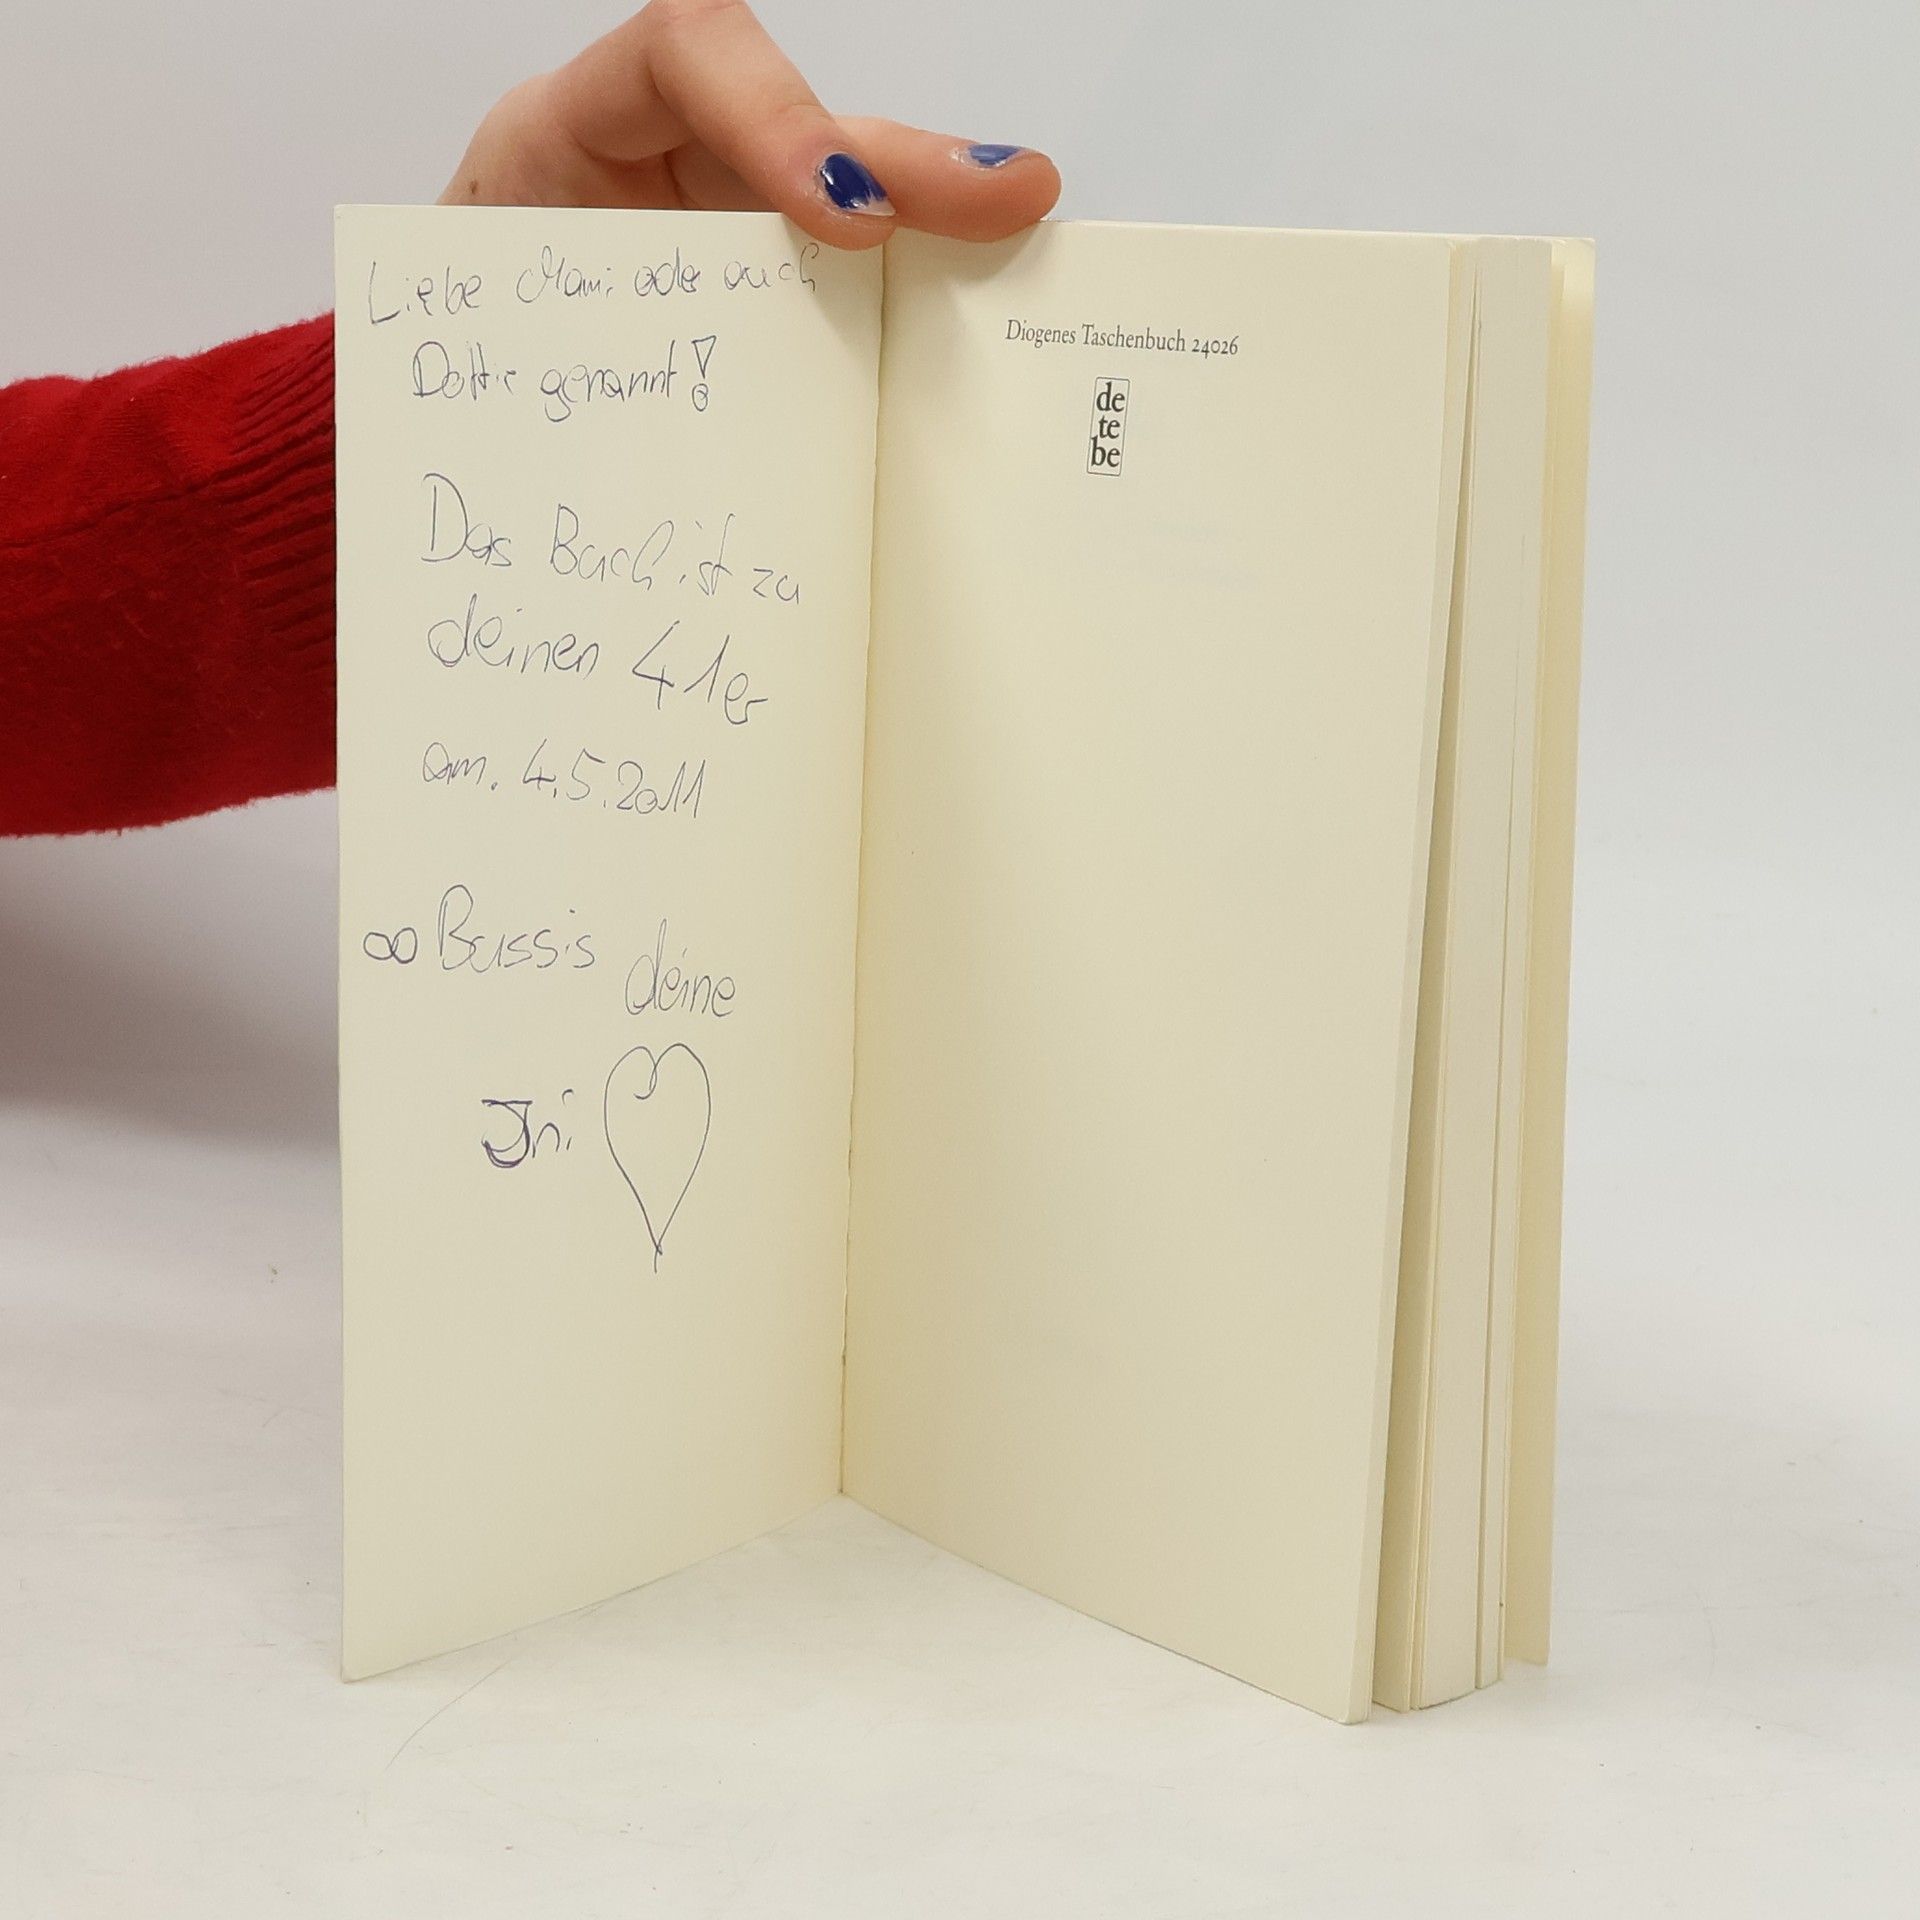 Liebe Mami oder auch
Dottie genannt!
Das Buch ist zu
deinen 41er
am. 4.5.2011
∞ Bussis deine
Ini
Diogenes Taschenbuch 24026
de
te
be